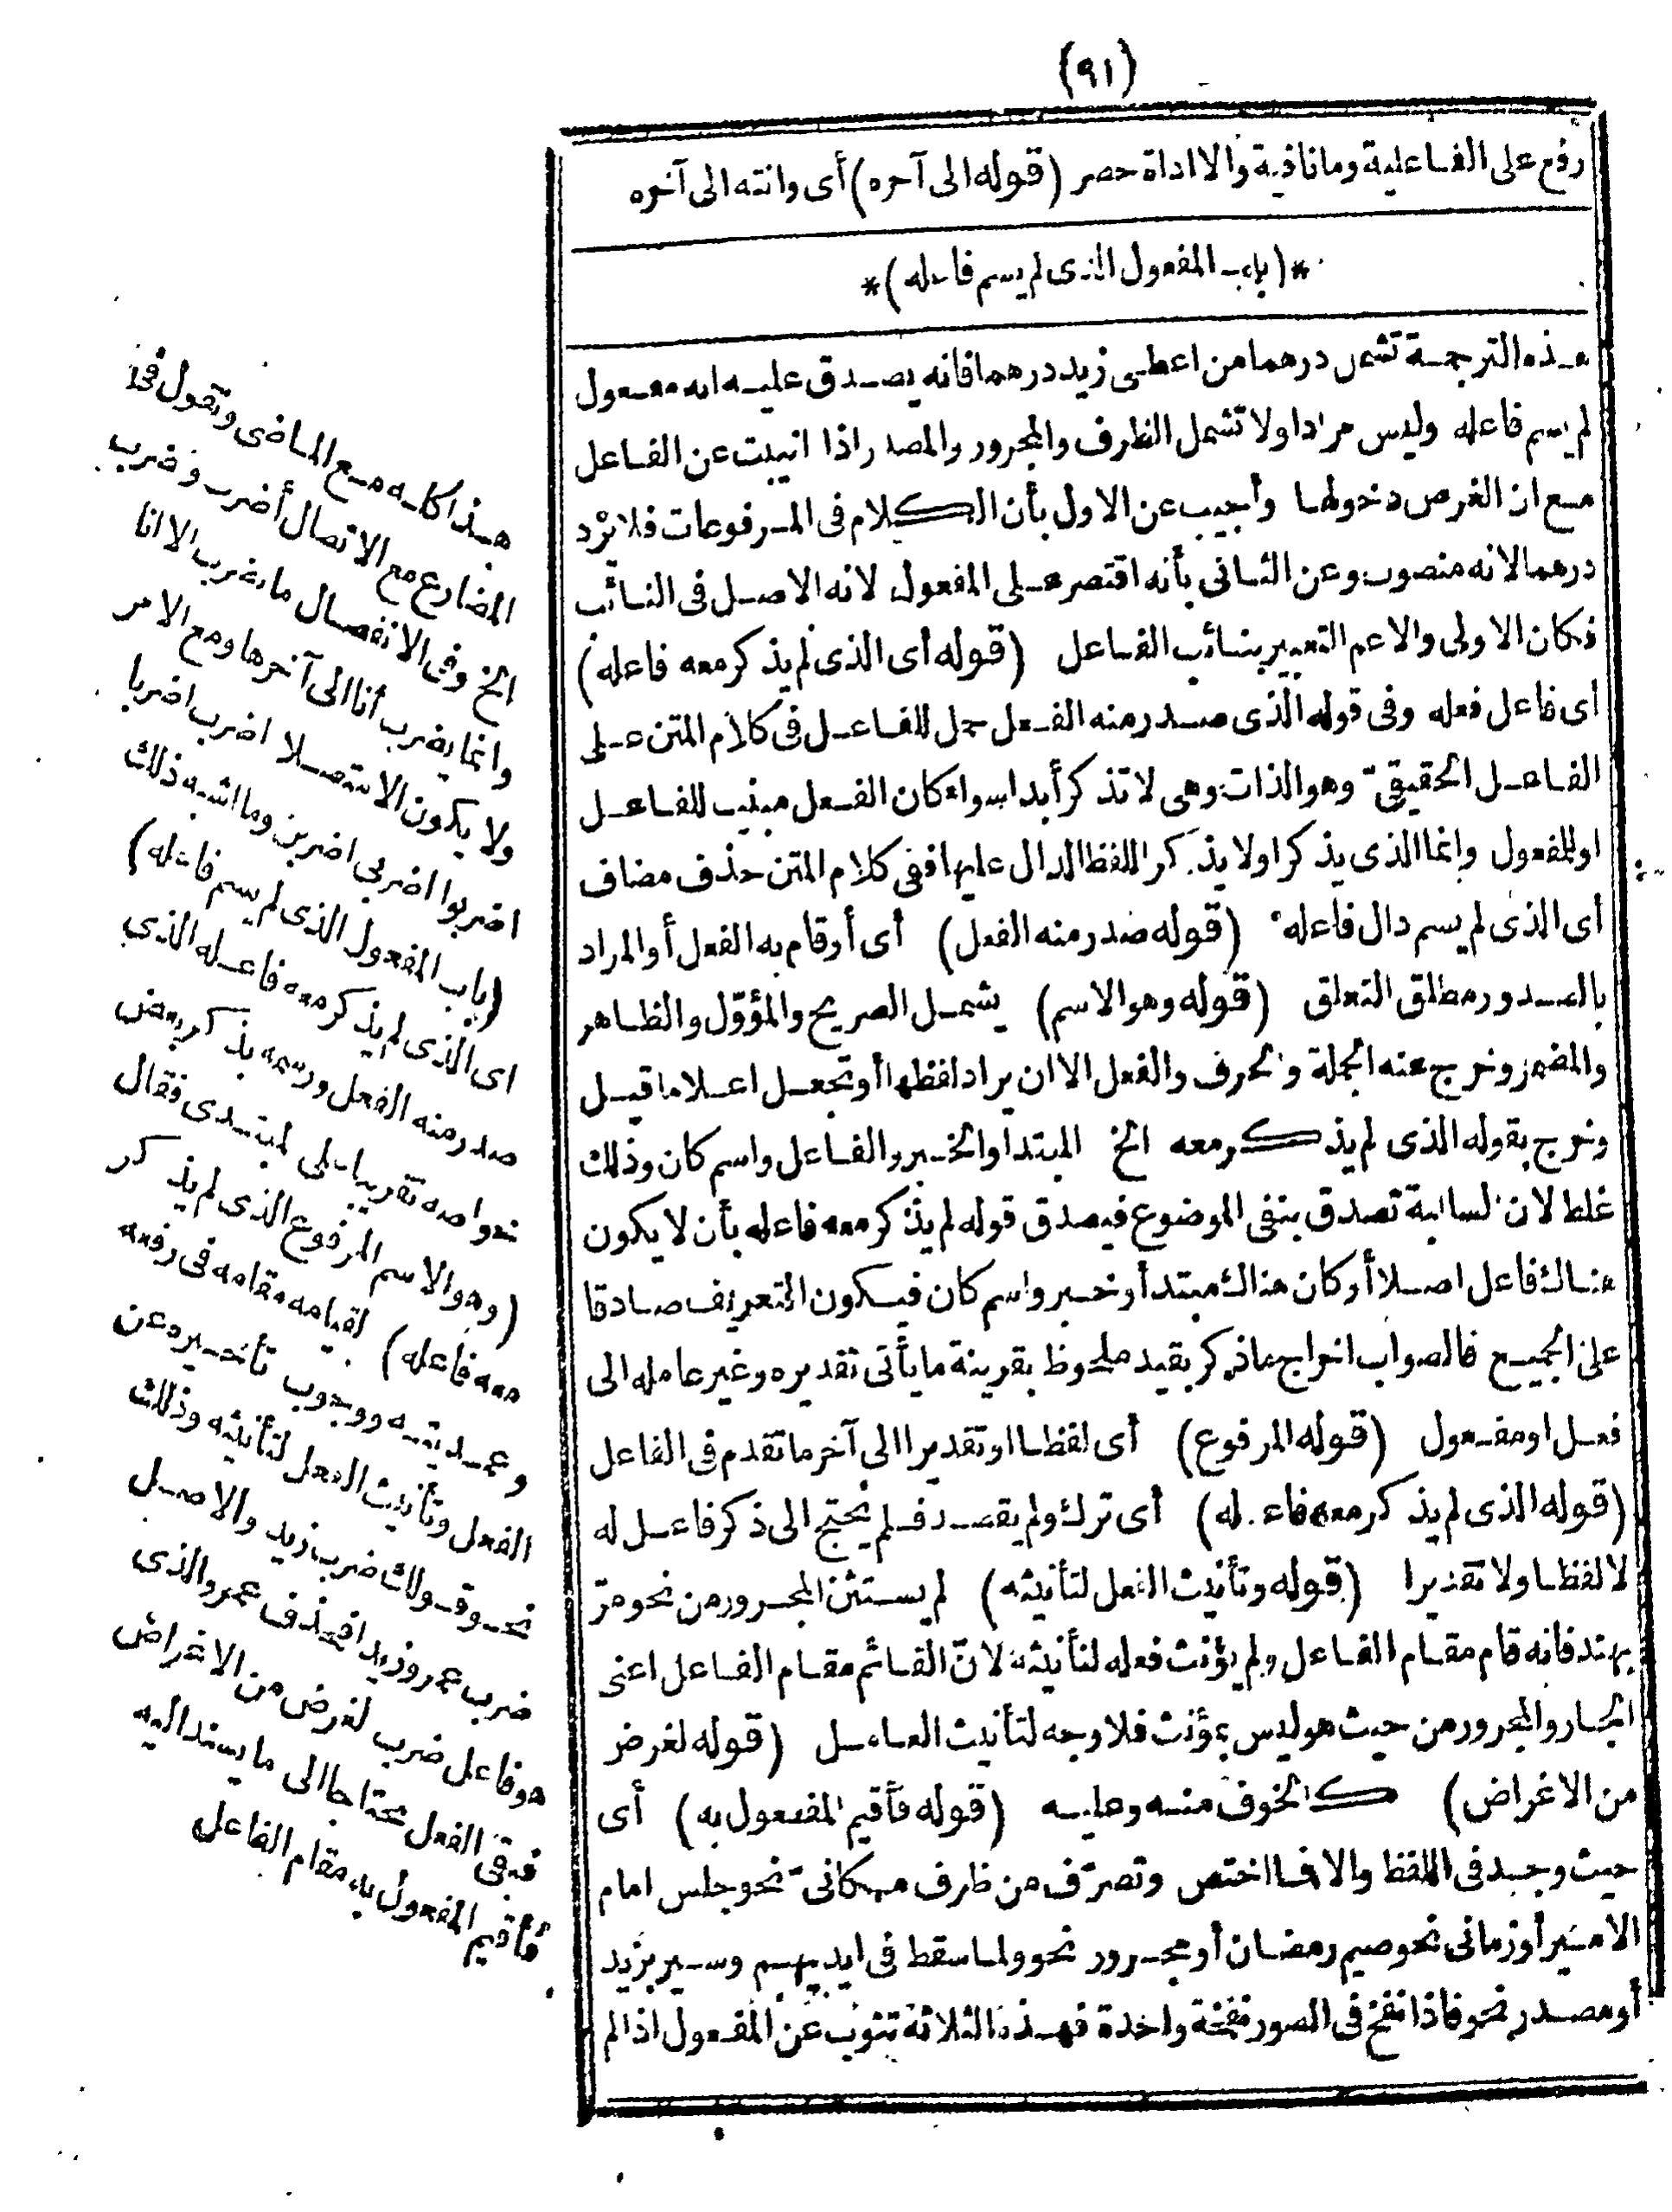 (٩١)
رفع على الفاعلية وما نافية والا اداة حصر (قوله الى آخره) أى وانته الى آخره
*(باب المفعول الذى لم يسم فاعله)*
هذه الترجمة تشمل درهما من اعطى زيد درهما فانه يصدق عليه انه مفعول
لم يسم فاعله وليس مرادا ولا تشمل الظرف والمجرور والمصدر اذا انيبت عن الفاعل
مع ان الغرض دخولها وأجيب عن الاول بأن الكلام فى المرفوعات فلا يرد
درهما لانه منصوب وعن الثانى بأنه اقتصر على المفعول لانه الاصل فى النائب
فكان الاولى والاعم التعبير بنائب الفاعل (قوله أى الذى لم يذكر معه فاعله)
أى فاعل فعله وفى قوله الذى صدر منه الفعل حمل للفاعل فى كلام المتن على
الفاعل الحقيقى وهو الذات وهى لا تذكر أبدا سواء كان الفعل مبنيا للفاعل
او للمفعول وانما الذى يذكر اولا يذكر اللفظ الدال عليها ففى كلام المتن حذف مضاف
أى الذى لم يسم دال فاعله (قوله صدر منه الفعل) أى أو قام به الفعل أو المراد
بالصدور مطلق التعلق (قوله وهو الاسم) يشمل الصريح والمؤوّل والظاهر
والمضمر وخرج عنه الجملة والحرف والفعل الا ان يراد لفظها أو تجعل اعلاما قيل
وخرج بقوله الذى لم يذكر معه الخ المبتدأ والخبر والفاعل واسم كان وذلك
غلط لان السالبة تصدق بنفى الموضوع فيصدق قوله لم يذكر معه فاعله بأن لا يكون
هناك فاعل اصلا أو كان هناك مبتدأ وخبر واسم كان فيكون التعريف صادقا
على الجميع فالصواب اخراج ماذكر بقيد ملحوظ بقرينة ما يأتى تقديره وغير عامله الى
فعل او مفعول (قوله المرفوع) أى لفظا او تقديرا الى آخر ما تقدم فى الفاعل
(قوله الذى لم يذكر معه فاعله) أى ترك ولم يقصد فلم يحتج الى ذكر فاعل له
لا لفظا ولا تقديرا (قوله وتأنيث الفعل لتأنيثه) لم يستثن المجرور من نحو مرّ
بهند فانه قام مقام الفاعل ولم يؤنث فعله لتأنيثه لانّ القائم مقام الفاعل اعنى
الجار والمجرور من حيث هو ليس بمؤنث فلا وجه لتأنيث العامل (قوله لغرض
من الاغراض) كالخوف منه وعليه (قوله فأقيم المفعول به) أى
حيث وجد فى اللفظ والا فما اختص وتصرّف من ظرف مكانىّ نحو جلس امام
الامير أو زمانى نحو صيم رمضان أو مجرور نحو ولما سقط فى ايديهم وسير بزيد
أو مصدر نحو فاذا نفخ فى الصور نفخة واحدة فهذه الثلاثة تنوب عن المفعول اذا لم
هذا كله مع الماضى وتقول فى
المضارع مع الاتصال أضرب وضرب
الخ وفى الانفصال ما يضرب الا انا
وانما يضرب أنا الى آخرها ومع الامر
ولا يكون الا متصلا اضرب اضربا
اضربوا اضربى اضربن وما اشبه ذلك
(باب المفعول الذى لم يسم فاعله)
اى الذى لم يذكر معه فاعله الذى
صدر منه الفعل ورسمه بذكر بعض
خواصه تقريبا على المبتدى فقال
(وهو الاسم المرفوع الذى لم يذكر
معه فاعله) لقيامه مقامه فى رفعه
وعمديته ووجوب تأخيره عن
الفعل وتأنيث الفعل لتأنيثه وذلك
نحو قولك ضرب زيد والاصل
ضرب عمرو زيدا فحذف عمرو الذى
هو فاعل ضرب لغرض من الاغراض
فبقى الفعل محتاجا الى ما يسند اليه
فأقيم المفعول به مقام الفاعل